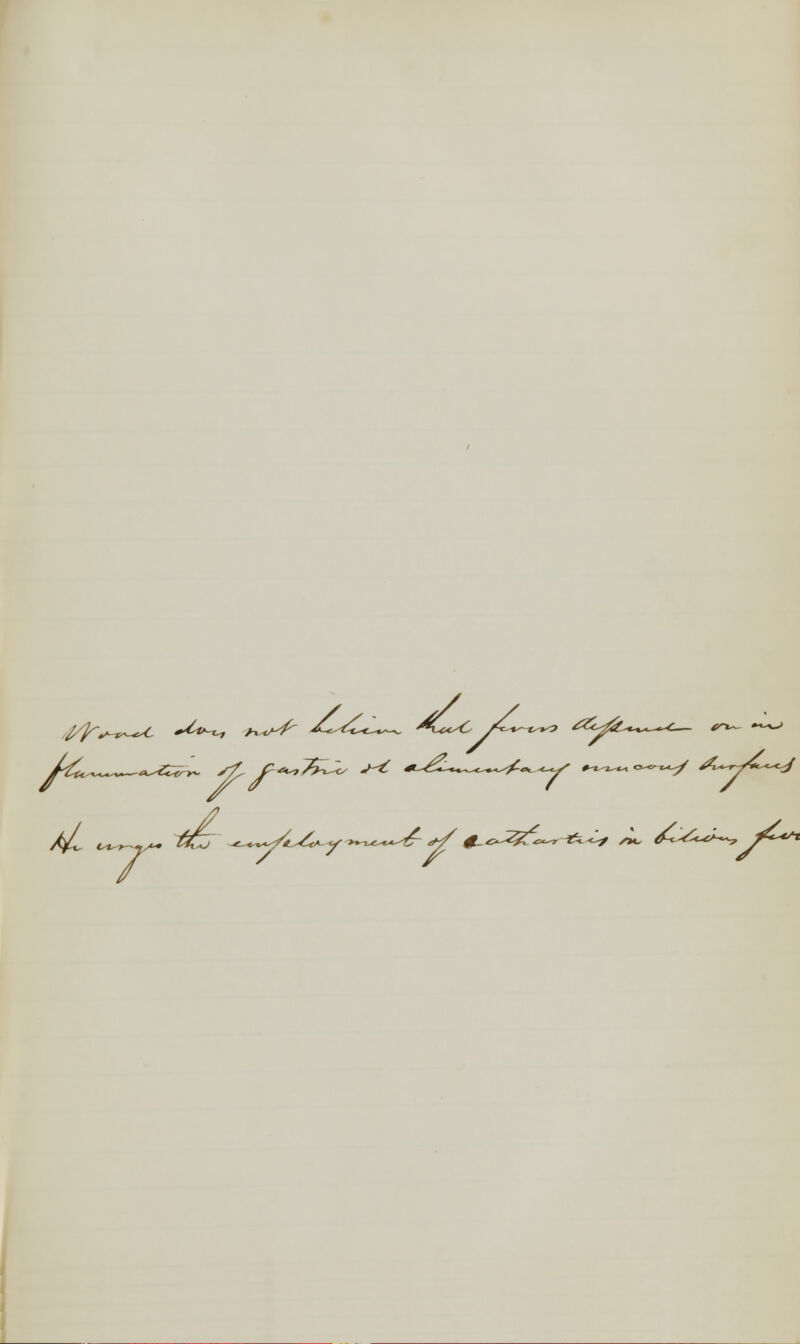 Wood does not believe that fever depends on in
flammation of gastric et alimentary mucous surfaces
He urges the employment of cathartics in bilious fever